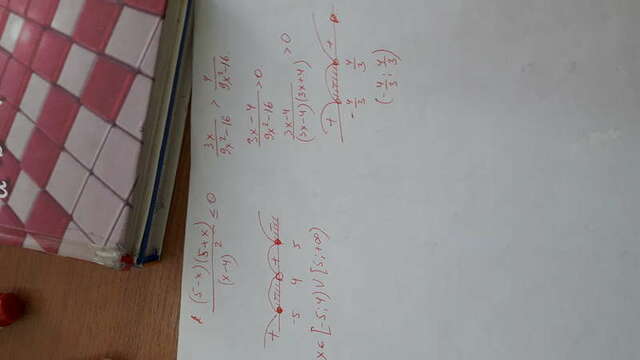 (5-x)(5+x)/(x-4)² ≤ 0
+ +
-5 4 5
x∈[-5;4)∪[5;+∞)
3x/(9x²-16) > 4/(9x²-16)
(3x-4)/(9x²-16) > 0
(3x-4)/((3x-4)(3x+4)) > 0
+ +
-4/3 4/3
(-4/3; 4/3)